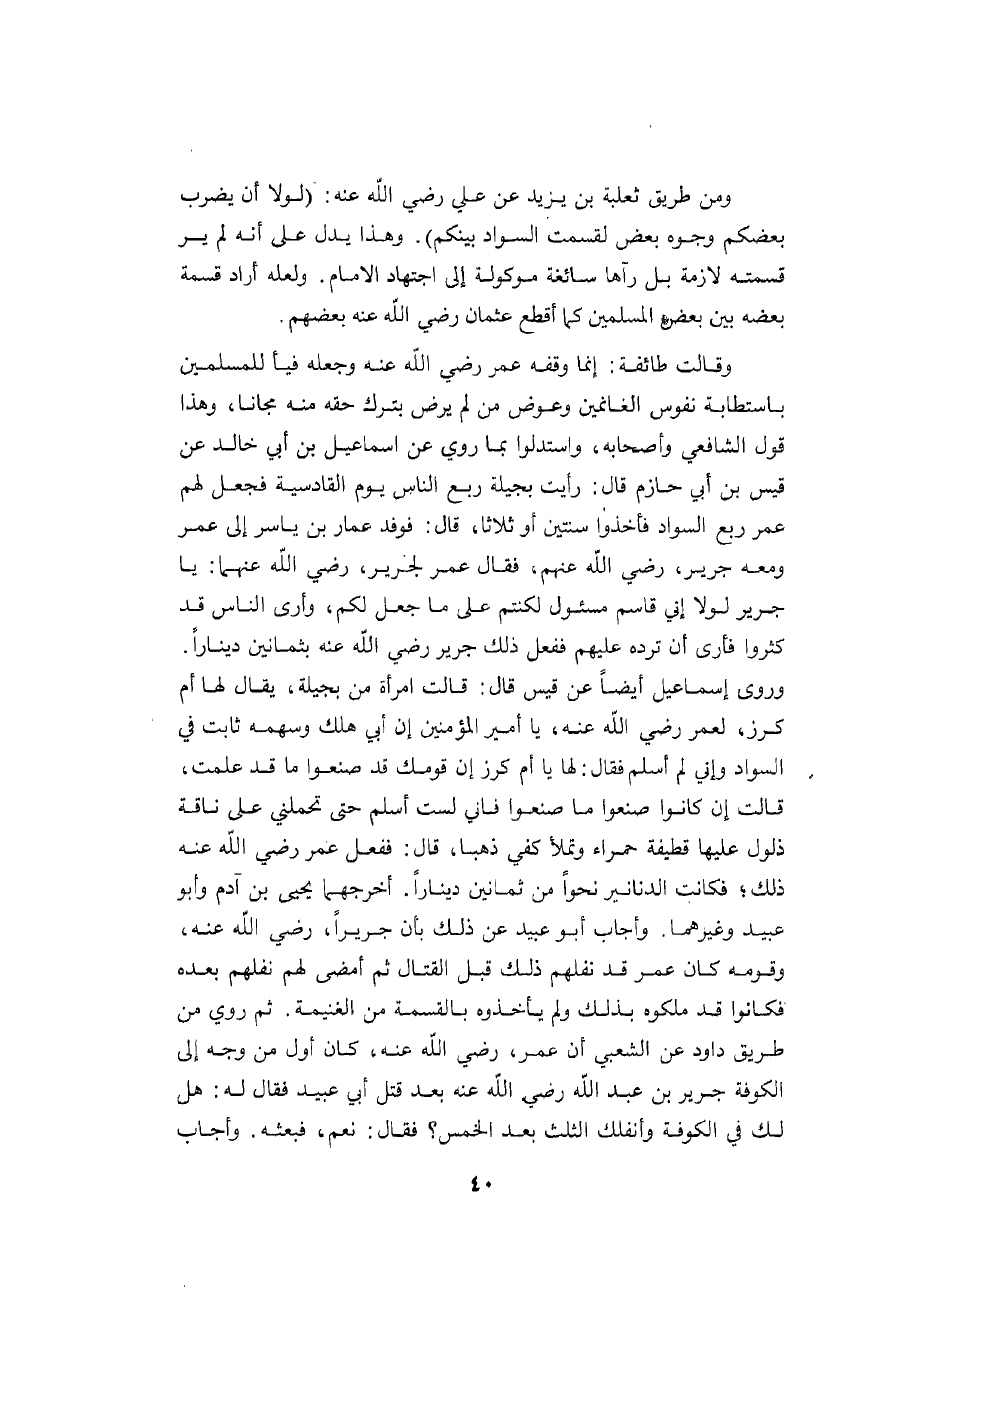 ومن طريق ثعلبة بن يزيد عن علي رضي اللّه عنه: (لولا أن يضرب
بعضكم وجوه بعض لقسمت السواد بينكم). وهذا يدل على أنه لم ير
قسمته لازمة بل رآها سائغة موكولة إلى اجتهاد الامام. ولعله أراد قسمة
بعضه بين بعض المسلمين كما أقطع عثمان رضي اللّه عنه بعضهم.
وقالت طائفة: إنما وقفه عمر رضي اللّه عنه وجعله فيأ للمسلمين
باستطابة نفوس الغانمين وعوض من لم يرض بترك حقه منه مجانا، وهذا
قول الشافعي وأصحابه، واستدلوا بما روي عن اسماعيل بن أبي خالد عن
قيس بن أبي حازم قال: رأيت بجيلة ربع الناس يوم القادسية فجعل لهم
عمر ربع السواد فأخذوا سنتين أو ثلاثا، قال: فوفد عمار بن ياسر إلى عمر
ومعه جرير، رضي اللّه عنهم، فقال عمر لجرير، رضي اللّه عنهما: يا
جرير لولا إني قاسم مسئول لكنتم على ما جعل لكم، وأرى الناس قد
كثروا فأرى أن ترده عليهم ففعل ذلك جرير رضي اللّه عنه بثمانين ديناراً.
وروى إسماعيل أيضاً عن قيس قال: قالت امرأة من بجيلة، يقال لها أم
كرز، لعمر رضي اللّه عنه، يا أمير المؤمنين إن أبي هلك وسهمه ثابت في
السواد وإني لم أسلم فقال: لها يا أم كرز إن قومك قد صنعوا ما قد علمت،
قالت إن كانوا صنعوا ما صنعوا فاني لست أسلم حتى تحملني على ناقة
ذلول عليها قطيفة حمراء وتملأ كفي ذهبا، قال: ففعل عمر رضي اللّه عنه
ذلك؛ فكانت الدنانير نحواً من ثمانين ديناراً. أخرجهما يحيى بن آدم وأبو
عبيد وغيرهما. وأجاب أبو عبيد عن ذلك بأن جريراً، رضي اللّه عنه،
وقومه كان عمر قد نفلهم ذلك قبل القتال ثم أمضى لهم نفلهم بعده
فكانوا قد ملكوه بذلك ولم يأخذوه بالقسمة من الغنيمة. ثم روي من
طريق داود عن الشعبي أن عمر، رضي اللّه عنه، كان أول من وجه إلى
الكوفة جرير بن عبد اللّه رضي اللّه عنه بعد قتل أبي عبيد فقال له: هل
لك في الكوفة وأنفلك الثلث بعد الخمس؟ فقال: نعم، فبعثه. وأجاب
٤٠